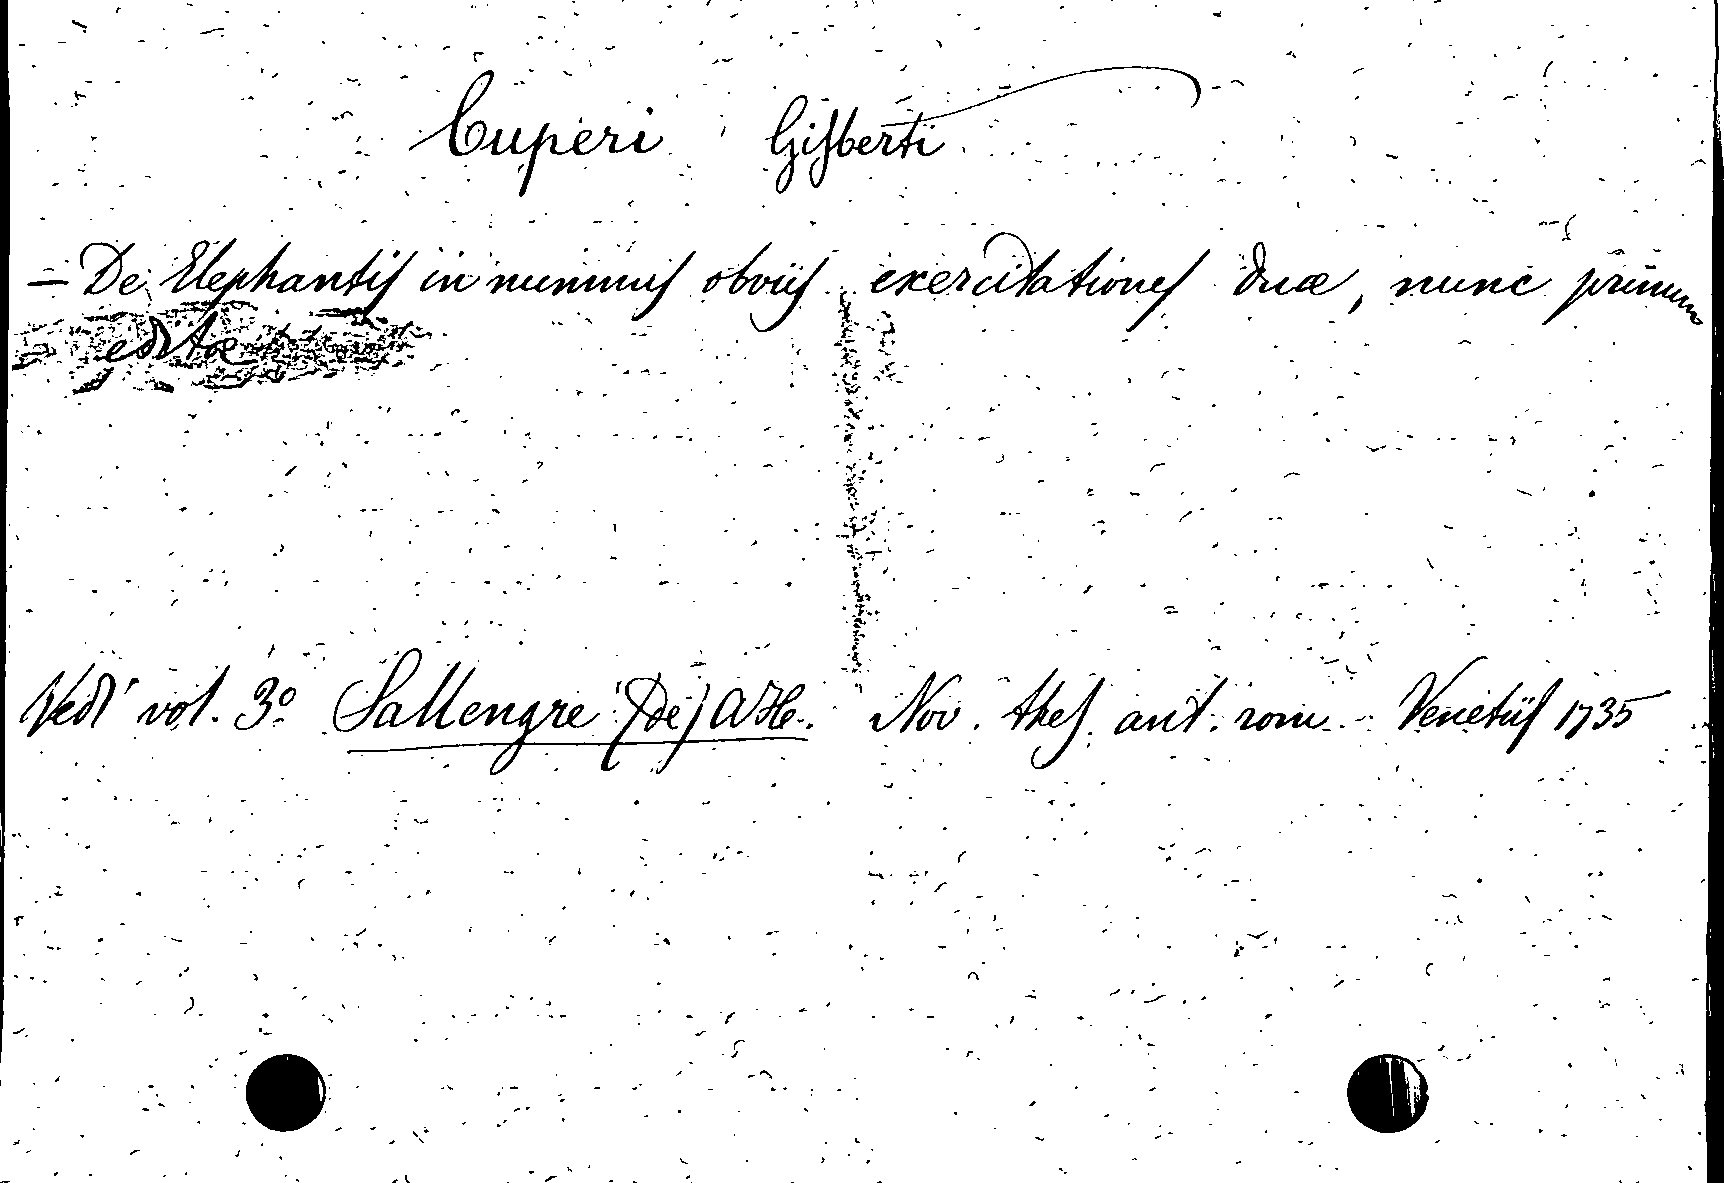 Cuperi Gisberti
- De Elephantis in nummis obviis exercitationes duæ, nunc primum
editæ
Vedi vol. 3º Sallengre (De) A. H. Nov. thes. ant. rom. Venetiis 1735